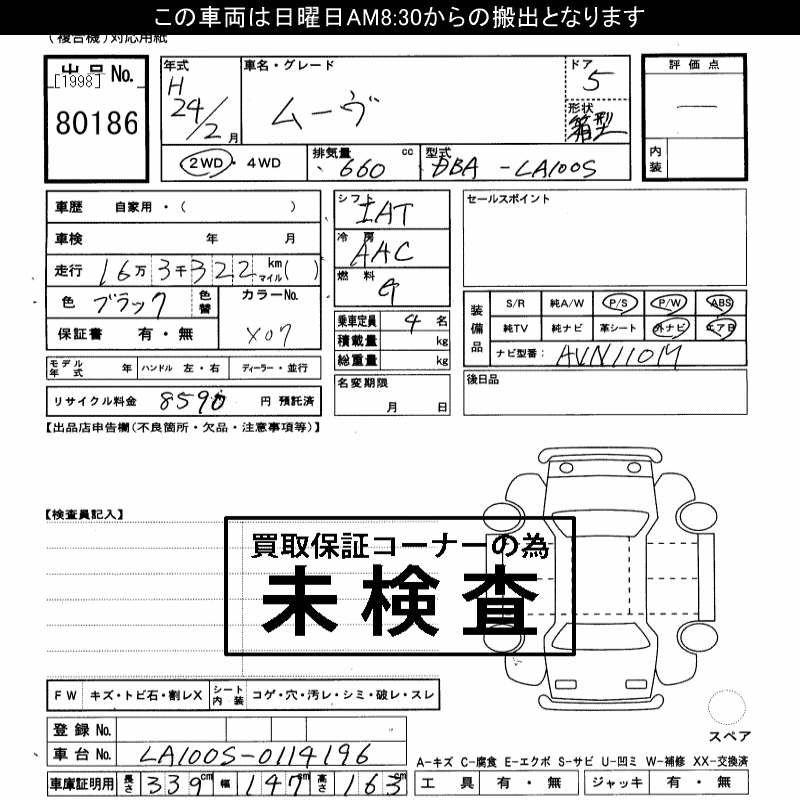 この車両は日曜日AM8:30からの搬出となります
(複合機)対応用紙
出品No. [1998] 80186
年式 H 24/2 月
車名・グレード ムーヴ
ドア 5
形状 箱型
評価点 —
内装
2WD・4WD
排気量 660 cc
型式 DBA-LA100S
車歴 自家用・( )
車検 年 月
走行 16万3千322 km マイル( )
色 ブラック 色替
カラーNo. X07
保証書 有・無
モデル年式 年 ハンドル 左・右 ディーラー・並行
リサイクル料金 8590 円 預託済
シフト IAT
冷房 AAC
燃料 G
乗車定員 4 名
積載量 kg
総重量 kg
名変期限 月 日
セールスポイント
装備品 S/R 純A/W P/S P/W ABS
純TV 純ナビ 革シート 外ナビ エアB
ナビ型番: AVN110M
後日品
【出品店申告欄(不良箇所・欠品・注意事項等)】
【検査員記入】
買取保証コーナーの為
未検査
FW キズ・トビ石・割レX シート内装 コゲ・穴・汚レ・シミ・破レ・スレ
登録No.
車台No. LA100S-0114196
車庫証明用 長さ 339cm 幅 147cm 高さ 163cm
スペア
A-キズ C-腐食 E-エクボ S-サビ U-凹ミ W-補修 XX-交換済
工具 有・無 ジャッキ 有・無